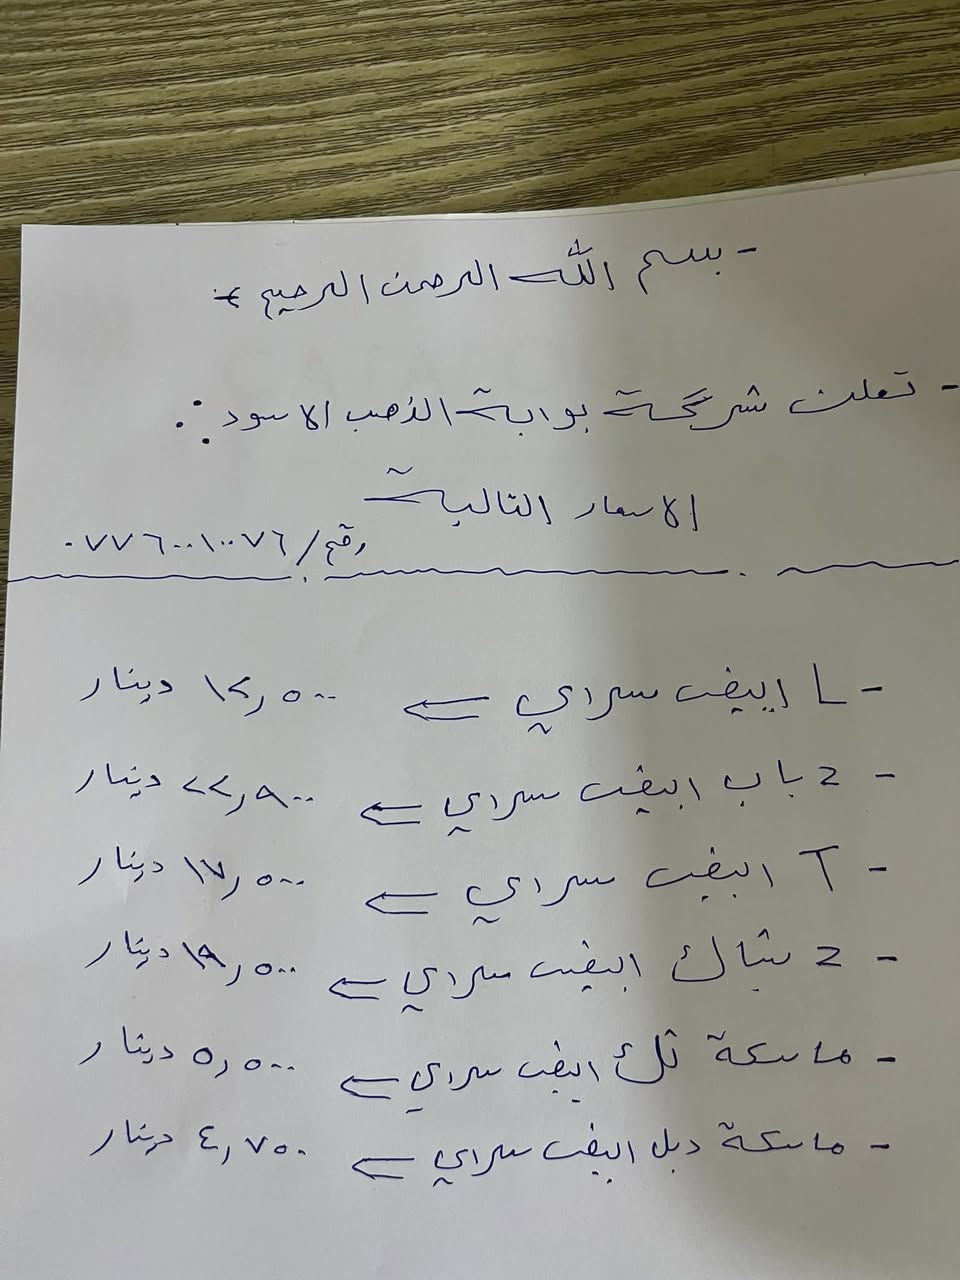 - بسم الله الرحمن الرحيم *
- تعلن شركة بوابة الذهب الاسود
الاسعار التالية
رقم / ٠٧٧٦٠٠١٠٠٧٦
- L ابيض سراي ⇐ ١٢,٥٠٠ دينار
- Z باب ابيض سراي ⇐ ٢٢,٩٠٠ دينار
- T ابيض سراي ⇐ ١٧,٥٠٠ دينار
- Z شباك ابيض سراي ⇐ ١٩,٥٠٠ دينار
- ماسكة تك ابيض سراي ⇐ ٥,٥٠٠ دينار
- ماسكة دبل ابيض سراي ⇐ ٤,٧٥٠ دينار